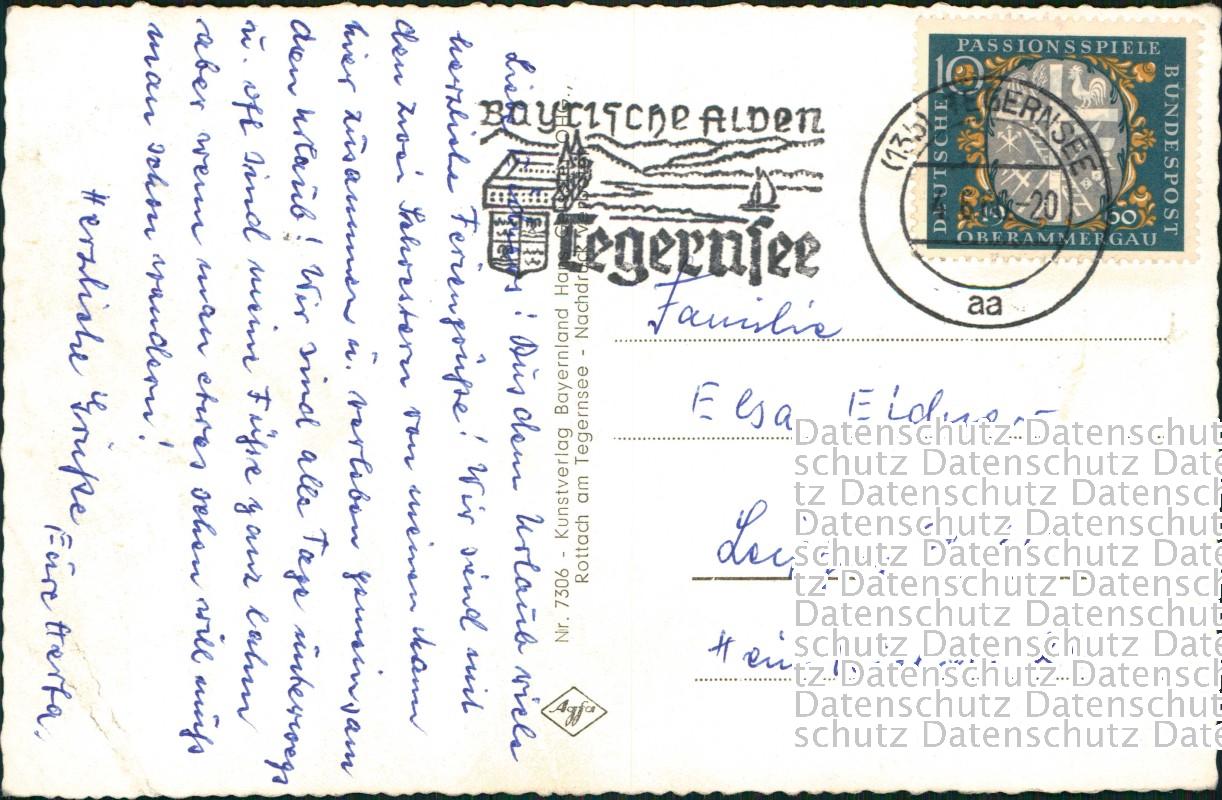 Aus dem Urlaub viele
herzliche Feriengrüße! Wir sind mit
den zwei Schwestern von meinem Mann
hier zusammen u. verleben gemeinsam
den Urlaub! Wir sind alle Tage unterwegs
u. oft sind meine Füße ganz lahm
aber wenn man etwas sehen will muß
man schon wandern!
Herzliche Grüße
Eure Herta.
Nr. 7306 - Kunstverlag Bayernland
Rottach am Tegernsee - Nachdruck
Agfa
BAYRISCHE ALPEN
Tegernsee
(13b) TEGERNSEE
-20
aa
PASSIONSSPIELE
10
DEUTSCHE
BUNDESPOST
19 60
OBERAMMERGAU
Familie
Elsa
Datenschutz Datenschut
schutz Datenschutz Date
tz Datenschutz Datensch
Datenschutz Datenschut
schutz Datenschutz Date
tz Datenschutz Datensch
Datenschutz Datenschut
schutz Datenschutz Date
tz Datenschutz Datensch
Datenschutz Datenschut
schutz Datenschutz Date